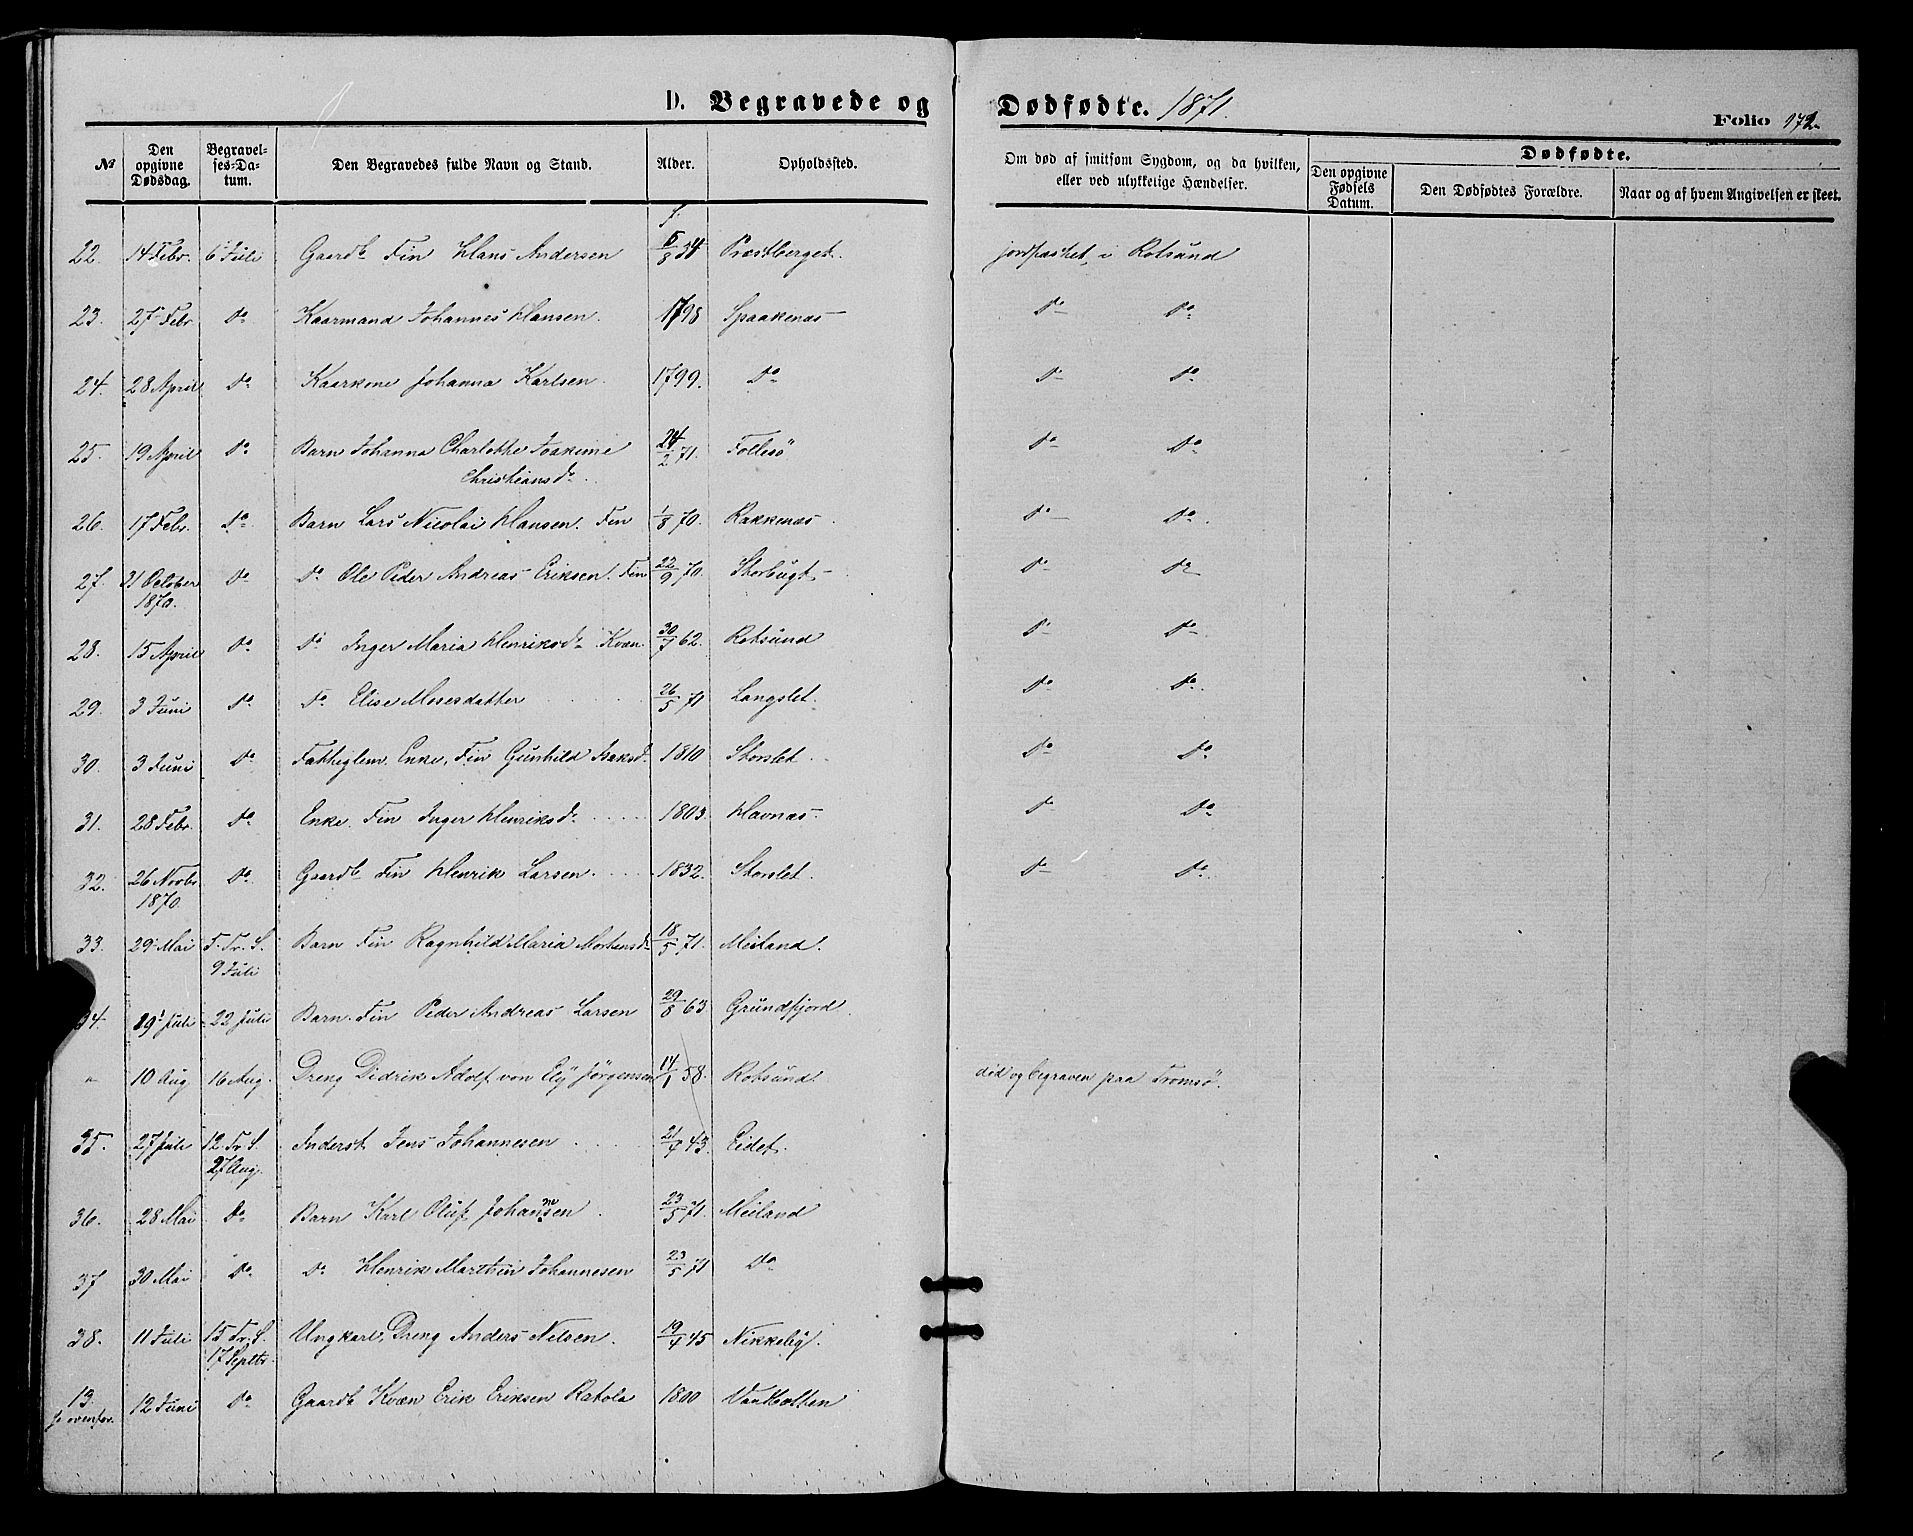 D. Begravede og Dødfødte. 1871.
Folio 172.
№ Den opgivne Dødsdag. Begravelses-Datum. Den Begravedes fulde Navn og Stand. Alder. Opholdssted. Om død af smitsom Sygdom, og da hvilken, eller ved ulykkelige Hændelser. Dødfødte. Den opgivne Fødsels Datum. Den Dødfødtes Forældre. Naar og af hvem Angivelsen er skeet.
f.
22. 14 Febr. 6 Juli Gaardb Fin Hans Andersen 5/8 34 Præstberget. jordpaakst. i Rotsund
23. 27 Febr. Do Kaarmand Johannes Hansen. 1798 Spaakenæs Do Do
24. 28 April Do Kaarkone Johanna Karlsen. 1799. Do Do Do
25. 19 April Do Barn Johanna Charlotthe Joakime 24/2 71. Follesö Do Do
Christiansd.
26. 17 Febr. Do Barn Lars Nicolai Hansen. Fin 1/8 70. Rakkenæs Do Do
27. 31 October Do Do Ole Peder Andreas Eriksen. Fin 22/9 70. Storbugt Do Do
1870.
28. 15 April Do Do Inger Maria Henriksd. Kvæn. 30/7 62. Rotsund Do Do
29. 3 Juni Do Do Elise Mosesdatter 26/5 71 Langslet. Do Do
30. 3 Juni Do Fattiglem. Enke, Fin Gunhild Isaksd. 1810 Storslet Do Do
31. 28 Febr. Do Enke. Fin Inger Henriksd. 1803. Havnæs Do Do
32. 26 Novbr. Do Gaardb Fin Henrik Larsen. 1832. Storslet. Do Do
1870.
33. 29 Mai 5. Tr. S. Barn Fin Ragnhild Maria Mortensd. 18/5 71. Meiland.
9 Juli
34. 19 Juli 22 Juli Barn. Fin Peder Andreas Larsen 29/8 63 Grundfjord
" 10 Aug 16 Aug. Dreng Didrik Adolf von Ely Jørgensen 14/1 58. Rotsund. død og begraven paa Tromsø.
35. 27 Juli 12. Tr. S. Inderst Jens Johannesen 21/4 43. Eidet.
27 Aug.
36. 28 Mai Do Barn Karl Oluf Johannesen 23/5 71. Meiland
37 30 Mai Do Do Henrik Marthin Johannesen 23/5 71 Do
38. 11 Juli 15 Tr. S. Ungkarl, Dreng Anders Nilsen. 19/4 45 Nikkeby.
17 Septbr.
13. 12 Juni Do Gaardb Kvæn Erik Eriksen Ratola 1800
jo ovenfor.